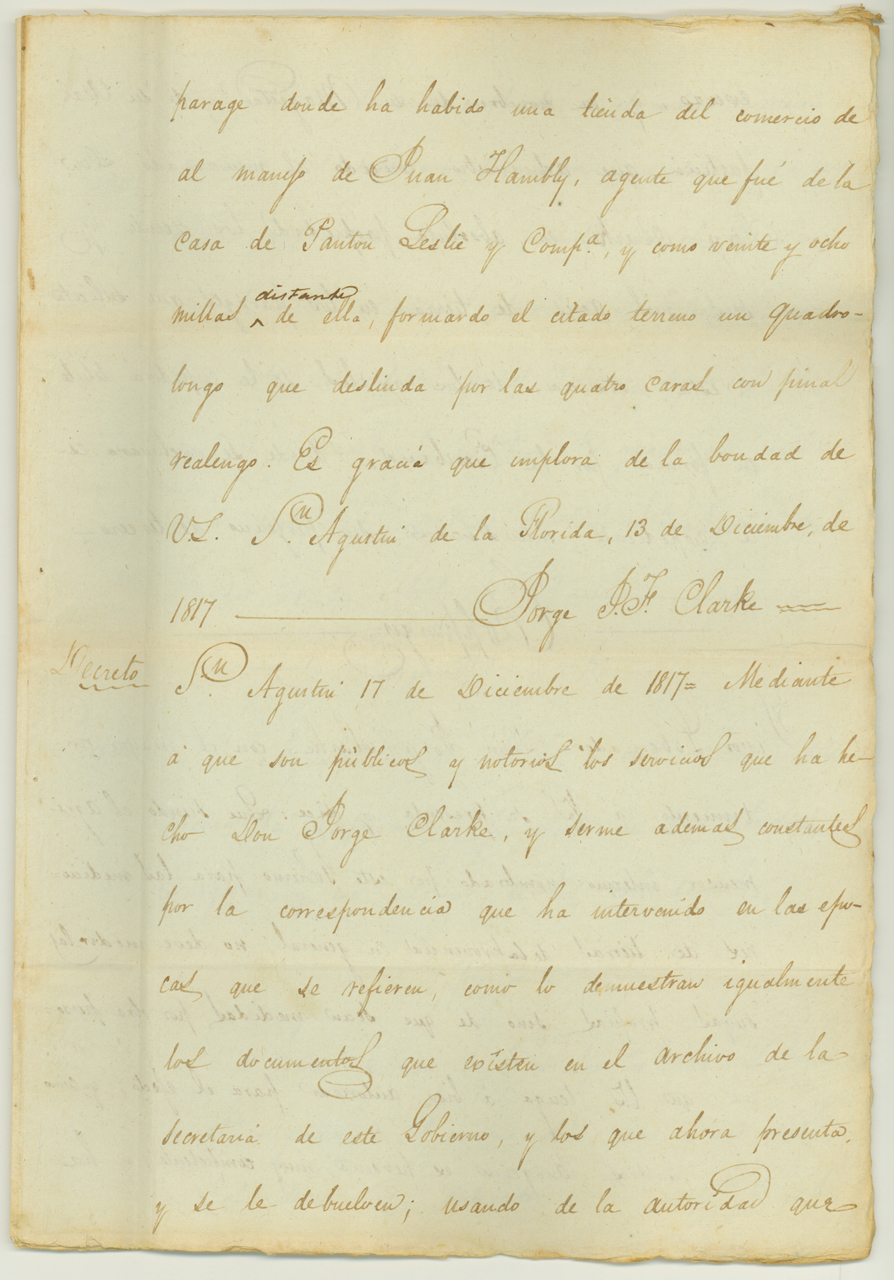 parage donde ha habido una tienda del comercio de
al manejo de Juan Hambly, agente que fué de la
casa de Panton Leslie y Comp.ª, y como veinte y ocho
distante
millas ^ de ella, formardo el citado terreno un quadro-
longo que deslinda por las quatro caras con pinal
realengo. Es gracia que implora de la bondad de
V.S. S.n Agustin de la Florida, 13 de Diciembre, de
1817 Jorge J.F. Clarke
Decreto
S.n Agustin 17 de Diciembre de 1817= Mediante
a que son públicos y notorios los servicios que ha he-
cho Don Jorge Clarke, y serme ademas constantes
por la correspondencia que ha intervenido en las epo-
cas que se refieren, como lo demuestran igualmente
los documentos que existen en el archivo de la
secretaria de este Gobierno, y los que ahora presenta,
y se le debuelven; usando de la autoridad que